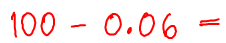 100 - 0.06 =